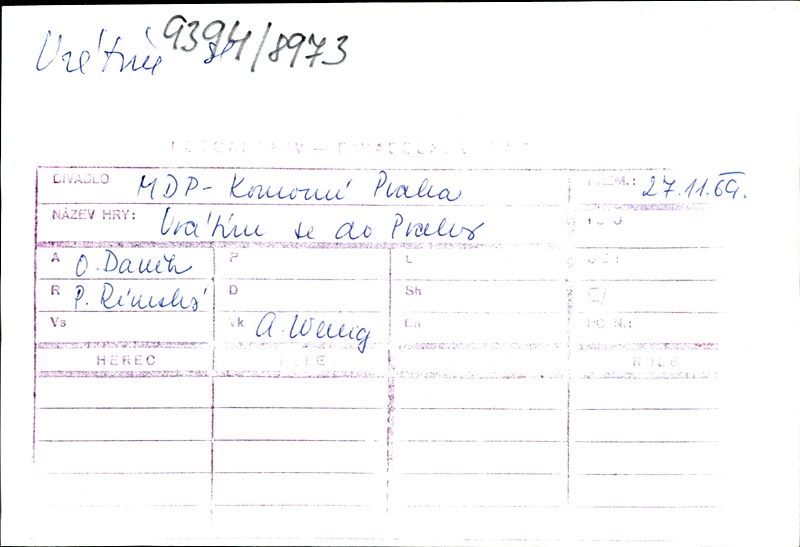 Vrátím se 9394/8973
DIVADLO MDP - Komorní Praha PREM.: 27.11.69.
NÁZEV HRY: Vrátím se do Prahy
A O. Daněk P L
R P. Rímský D Sh
Vs Vk A. Wenig Ch POZN.:
HEREC ROLE ROLE